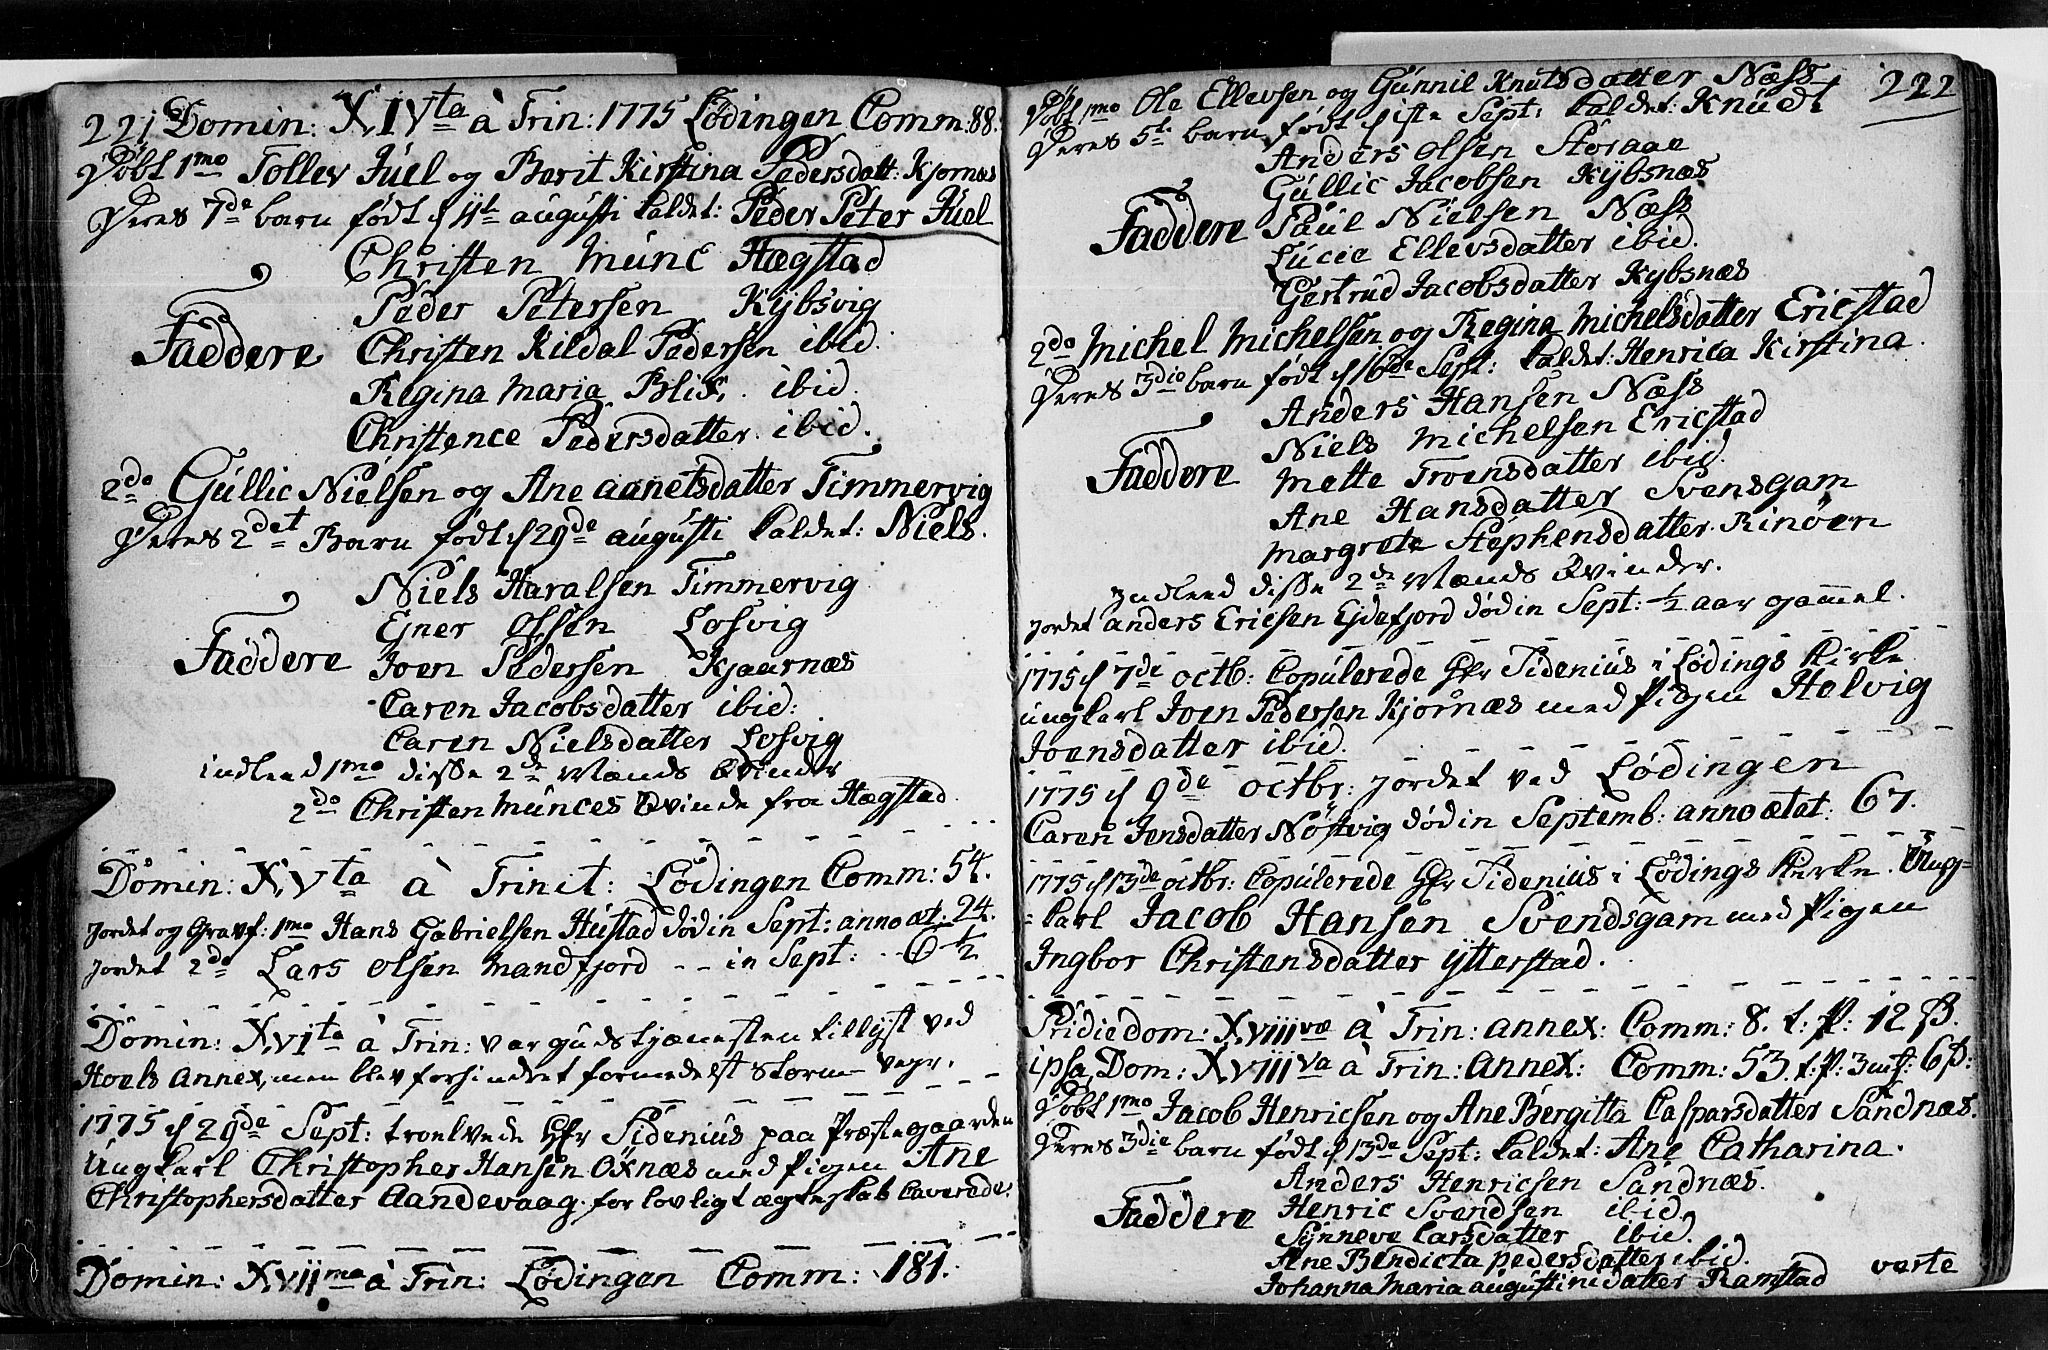 221 Domin: XIVta à Trin: 1775 Lødingen Comm: 88.
Døbt 1mo Tollev Juel og Berit Kirstina Pedersdatt: Kjørnæs
Deres 7de barn født d 4t augusti kaldet: Peder Peter Juel
Christen Munc Hægstad
Peder Petersen Kybsvig
Faddere Christen Kildal Pedersen ibid.
Regina Maria Blix. ibid.
Christence Pedersdatter ibid.
2do Gullic Nielsen og Ane aanetsdatter Timmervig
Deres 2det Barn født d 29de augusti kaldet: Niels.
Niels Haralsen Timmervig
Ejner Olsen Losvig
Faddere Joen Pedersen Kjaarnæs
Caren Jacobsdatter ibid:
Caren Nielsdatter Losvig
indleed 1mo disse 2de Mænds Qvinder
2do Christen Munces Qvinde fra Hægstad.
Domin: XVta à Trinit: Lødingen Comm: 54.
Jordet og Gravf: 1mo Hans Gabrielsen Hustad død in Sept: anno æt. 24.
Jordet 2do Lars Olsen Mandfjord -- in Sept: -- 6 1/2
Domin: XVIta à Trin: var gudstjænesten tillyst ved
Hoels Annex, men blev forhindret formedelst storm vejr.
1775 d 29de Sept: troelvede Hr Sidenius paa Præstegaarden
Ungkarl Christopher Hansen Oxnæs med Pigen Ane
Christophersdatter Aandevaag. for lovligt ægteskab Caverede
Domin: XVIIma à Trin: Lødingen Comm: 181.
Døbt 1mo Ole Ellevsen og Gunnil Knutsdatter Næss 222
Deres 5te barn født d 1ste Sept: kaldet: Knudt
Anders Olsen Storaae
Gullic Jacobsen Kybsnæs
Faddere Paul Nielsen Næss
Lucie Ellevsdatter ibid.
Gertrud Jacobsdatter Kybsnæs
2do Michel Michelsen og Regina Michelsdatter Ericstad
Deres 3die barn født d 16de Sept: kaldet: Henrica Kirstina.
Anders Hansen Næss
Niels Michelsen Ericstad
Faddere Mette Troensdatter ibid.
Ane Hansdatter Svensgam
Margrete Stephensdatter Rinøen
Indleed disse 2de Mænds Qvinder.
Jordet anders Ericsen Ejdefjord død in Sept: 1/2 aar gammel.
1775 d 7de octb: Copulerede Hr Sidenius i Lødings Kirke
ungkarl Joen Pedersen Kjørnæs med Pigen Helvig
Joensdatter ibid.
1775 d 9de octbr: jordet ved Lødingen
Caren Jensdatter Nøstvig død in Septemb: anno ætat: 67.
1775 d 13de octbr: Copulerede Hr Sidenius i Lødings Kirke. Ung-
-karl Jacob Hansen Svendsgam med Pigen
Ingbor Christensdatter Ytterstad.
Pridie dom: XVIIIvæ à Trin: annex: Comm: 8. t: P: 12 ß.
ipsa Dom: XVIIIva à Trin: Annex: Comm: 53. t: P: 3 mk: 6 ß:
Døbt 1mo Jacob Henricsen og Ane Bergitta Caspersdatter Sandnæs.
Deres 3die barn født d 13de Sept: kaldet: Ane Catharina.
Anders Henricsen Sandnæs.
Faddere Henric Svendsen ibid.
Synneve Larsdatter ibid.
Ane Bendicta pedersdatter ibid.
Johanna Maria augustinidatter Ramstad verte